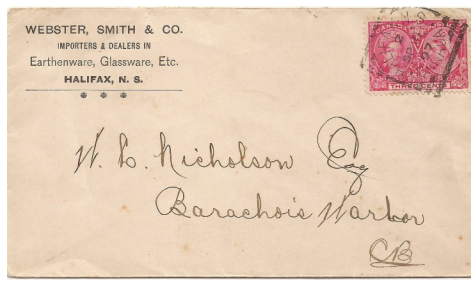 WEBSTER, SMITH & CO.
IMPORTERS & DEALERS IN
Earthenware, Glassware, Etc.
HALIFAX, N. S.
THREE CENTS
W. L. Nicholson Esq
Barachois Harbor
CB